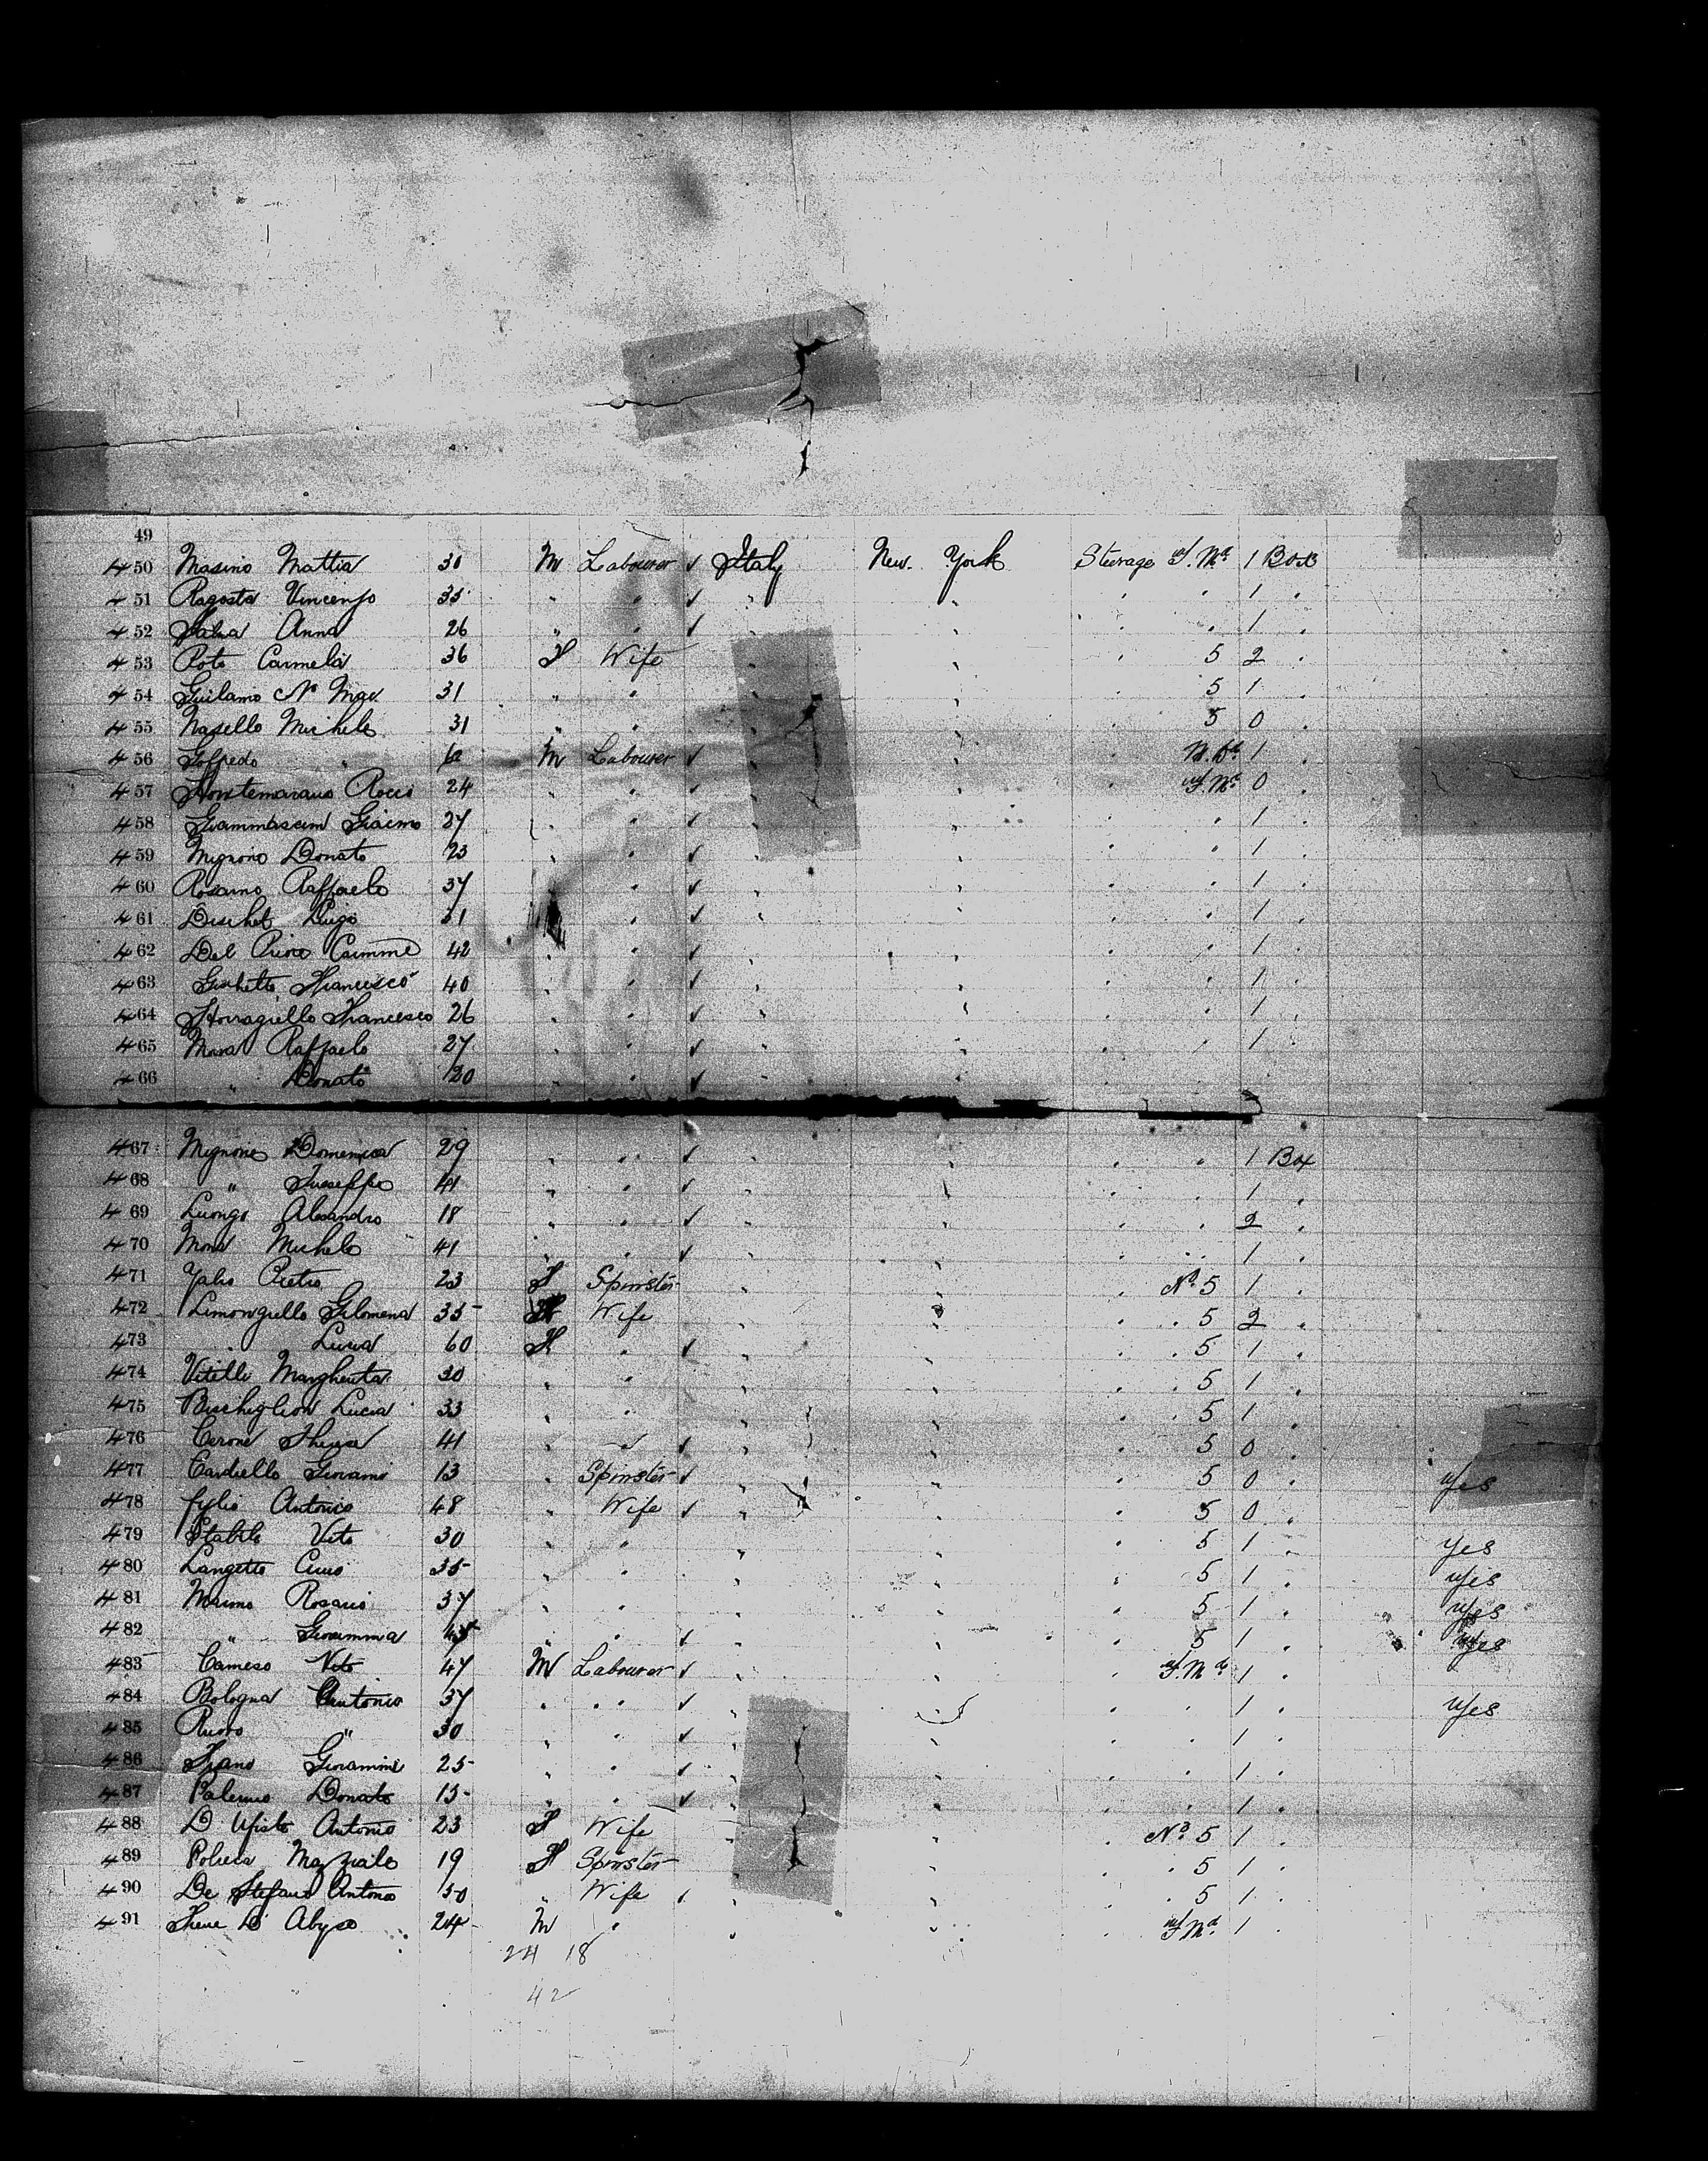 49
450 Masino Mattia 31 M Labourer ✓ Italy New York Steerage f. Md 1 Box
451 Ragosta Vincenzo 35 " " ✓ " " " " 1 "
452 Salva Anna 26 " " ✓ " " " " 1 "
453 Roto Carmela 36 F Wife " " " 5 2 "
454 Guilamo 31 " " " " " 5 1 "
455 Nasello Michele 31 " " " " " 5 0 "
456 Goffredo " M Labourer ✓ " " " 1 "
457 Rocco 24 " " ✓ " " " f. Md 0 "
458 Giacmo 27 " " ✓ " " " " 1 "
459 Mignono Donato 23 " " ✓ " " " " 1 "
460 Rosamo Raffaele 37 " " ✓ " " " " 1 "
461 Dischet Luigi 31 " ✓ " " " " 1 "
462 Del Priore 42 " " ✓ " " " " 1 "
463 Francesco 40 " " ✓ " " " " 1 "
464 Francesco 26 " " ✓ " " " " 1 "
465 Mara Raffaele 27 " " ✓ " " " " 1
466 " Donato 20 " " ✓
467 Mignone Domenica 29 " " ✓ " " " " 1 Box
468 " Giuseppe 41 " " ✓ " " " 1 "
469 Luongo Alesandro 18 " " ✓ " " " " 2 "
470 Mona Michele 41 " " ✓ " " " " 1 "
471 Pietro 23 F Spinster " " " No. 5 1 "
472 Limongiello Filomena 35 F Wife " " " 5 2 "
473 " Lucia 60 F " ✓ " " " 5 1 "
474 Vitelli Margherita 30 " " " " " 5 1 "
475 Bischiglion Lucia 33 " " " " " 5 1 "
476 Cerone Theresa 41 " " ✓ " " " 5 0 "
477 Cardiello Giovanni 13 " Spinster ✓ " " " 5 0 " Yes
478 Antonio 48 " Wife ✓ " " " 5 0 "
479 Stabile Vito 30 " " " " " 5 1 " Yes
480 Langetto 35 " " " " " 5 1 " Yes
481 Rosario 37 " " " " " 5 1 " Yes
482 " Giovanna 45 " " ✓ " " " 5 1 " Yes
483 Cameso Vito 47 M Labourer ✓ " " " f. Md 1 "
484 Bologna Antonio 37 " " ✓ " " " " 1 " Yes
485 Ruoro " 30 " " ✓ " " " " 1 "
486 Giovanni 25 " " ✓ " " " " 1 "
487 Palermo Donato 15 " " ✓ " " " " 1 "
488 Antonio 23 F Wife " " " No. 5 1 "
489 19 F Spinster " " " 5 1 "
490 De Stefano Antonio 50 " Wife ✓ " " " 5 1 "
491 24 M " " " " f. Md 1 "
24 18
42